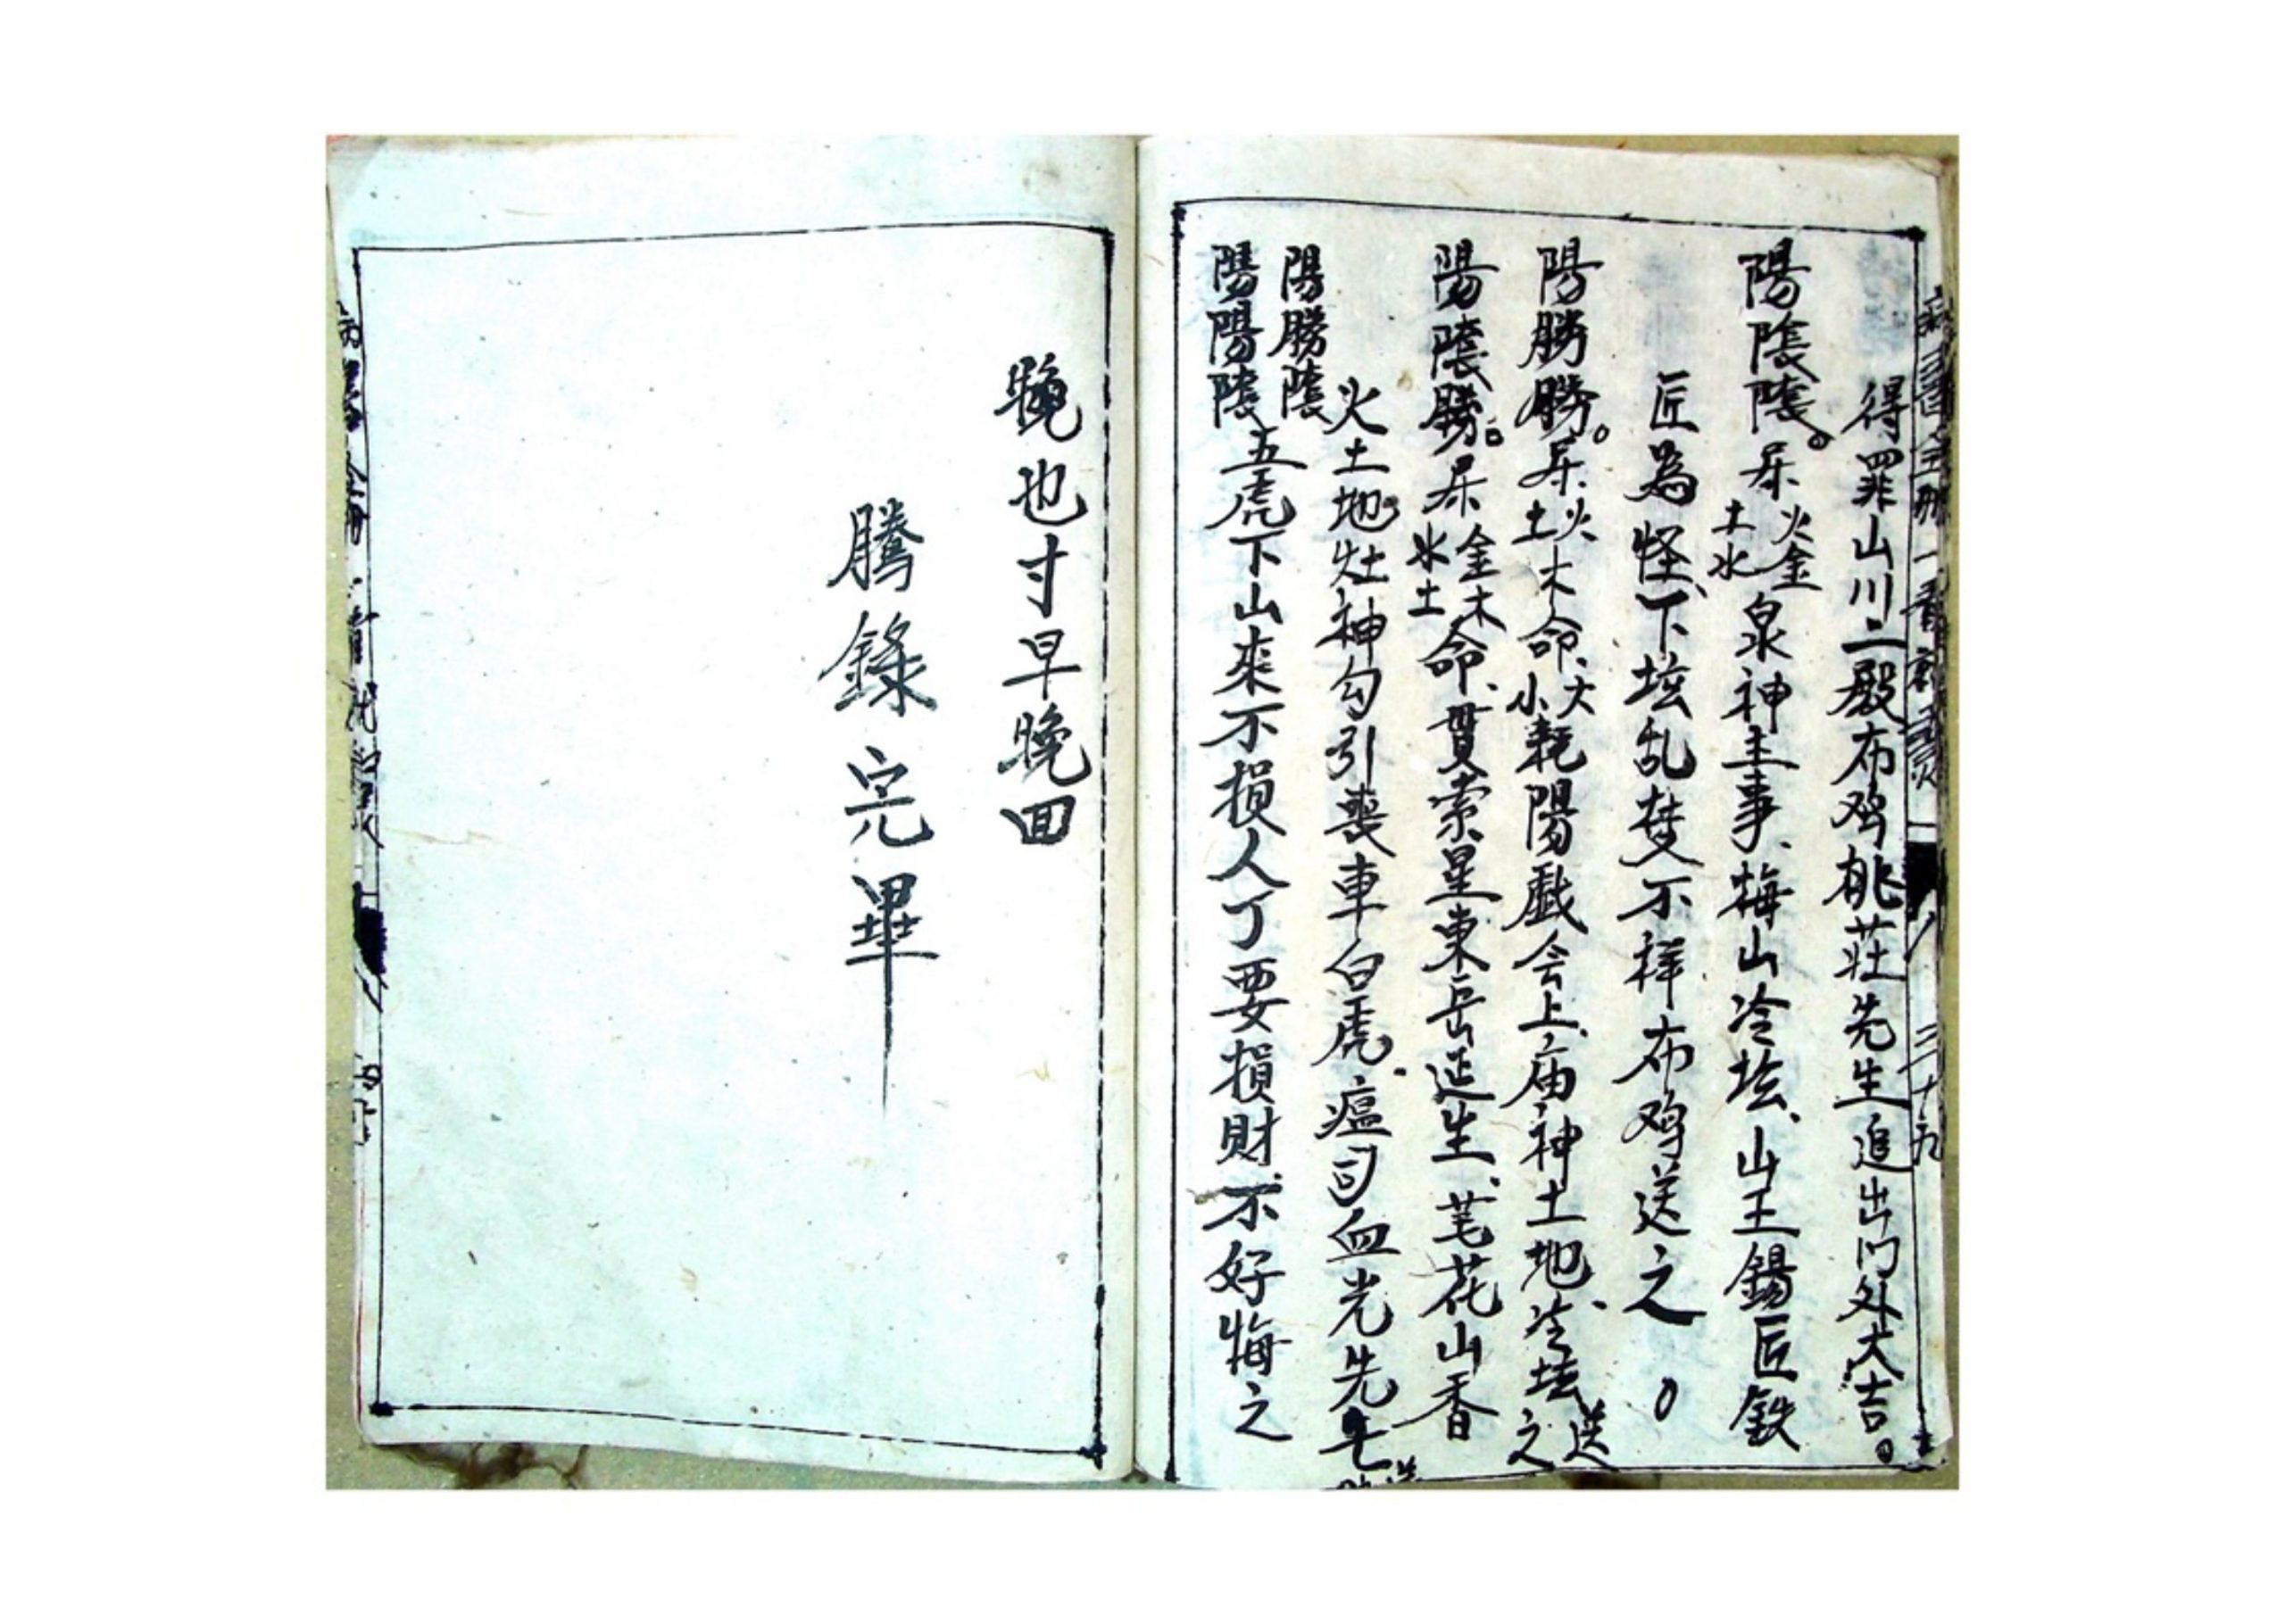 得罪山川二殿布鸡桃莊先生追出门外大吉。
陽隂隂。杀火金土水泉神主事、梅山冷坛、山王錫匠鉄
匠為怪、下坛乱楚不祥布鸡送之。
陽勝勝。杀火木土命、大小耗陽戲会上、庙神土地、冷坛送之
陽隂勝。杀金木水土命、貫索星東岳延生、茅花山香
火土地灶神勾引喪車白虎、瘟司血光先生
陽勝隂
陽陽隂
五虎下山來不損人丁要損財、不好悔之
晚也寸早晚回
騰錄完畢